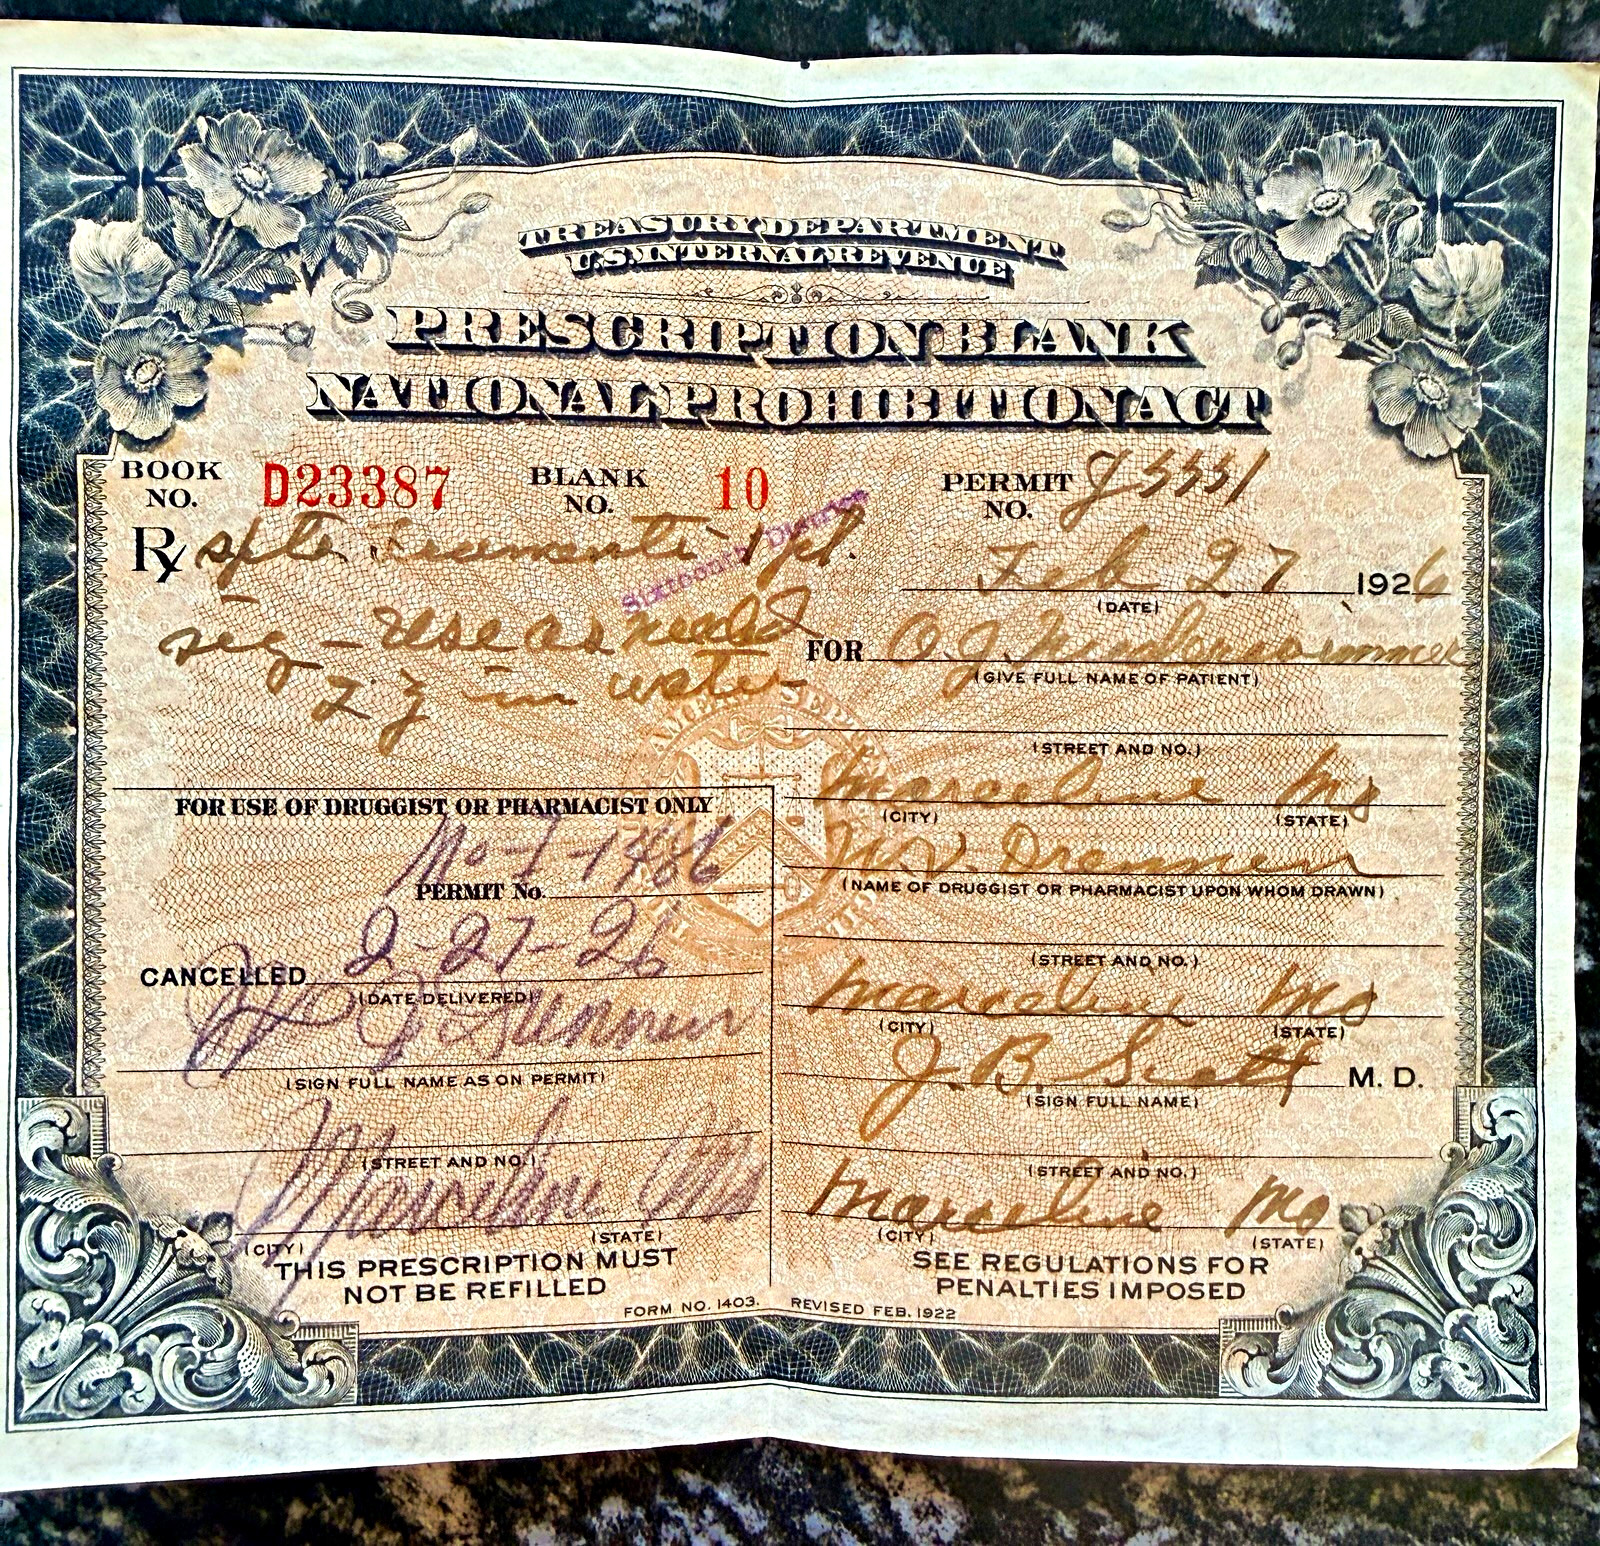 TREASURY DEPARTMENT
U.S. INTERNAL REVENUE
PRESCRIPTION BLANK
NATIONAL PROHIBITION ACT
BOOK NO. D23387 BLANK NO. 10 PERMIT NO.
Rx 1 pt.
Sixteenth District
Feb 27 1926
(DATE)
sig - Use as needed
in water
FOR O.J.
(GIVE FULL NAME OF PATIENT)
(STREET AND NO.)
Marceline Mo
(CITY) (STATE)
(NAME OF DRUGGIST OR PHARMACIST UPON WHOM DRAWN)
(STREET AND NO.)
Marceline Mo
(CITY) (STATE)
J. B. Scott M. D.
(SIGN FULL NAME)
(STREET AND NO.)
Marceline Mo
(CITY) (STATE)
SEE REGULATIONS FOR
PENALTIES IMPOSED
FOR USE OF DRUGGIST OR PHARMACIST ONLY
PERMIT No.
CANCELLED 2-27-26
(DATE DELIVERED)
(SIGN FULL NAME AS ON PERMIT)
(STREET AND NO.)
Marceline Mo
(CITY) (STATE)
THIS PRESCRIPTION MUST
NOT BE REFILLED
FORM NO. 1403. REVISED FEB. 1922